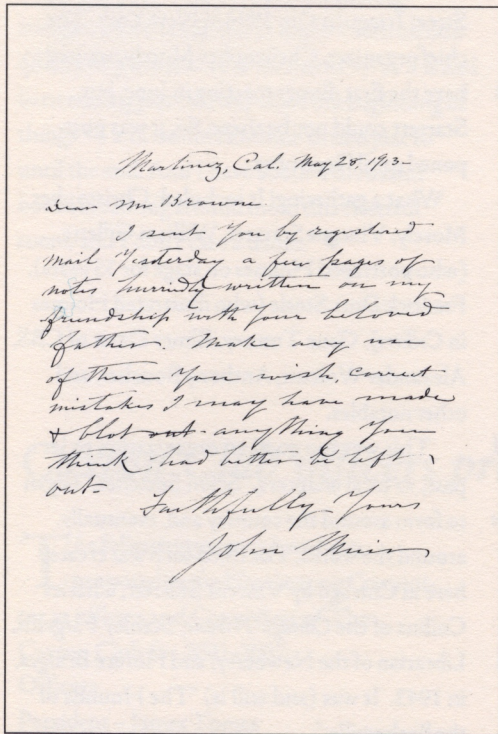 Martinez, Cal. May 28, 1913-
Dear Mr Browne
I sent you by registered
mail yesterday a few pages of
notes hurridly written on my
friendship with your beloved
father. Make any use
of them you wish, correct
mistakes I may have made
& blot out anything you
think had better be left
out-
Faithfully Yours
John Muir